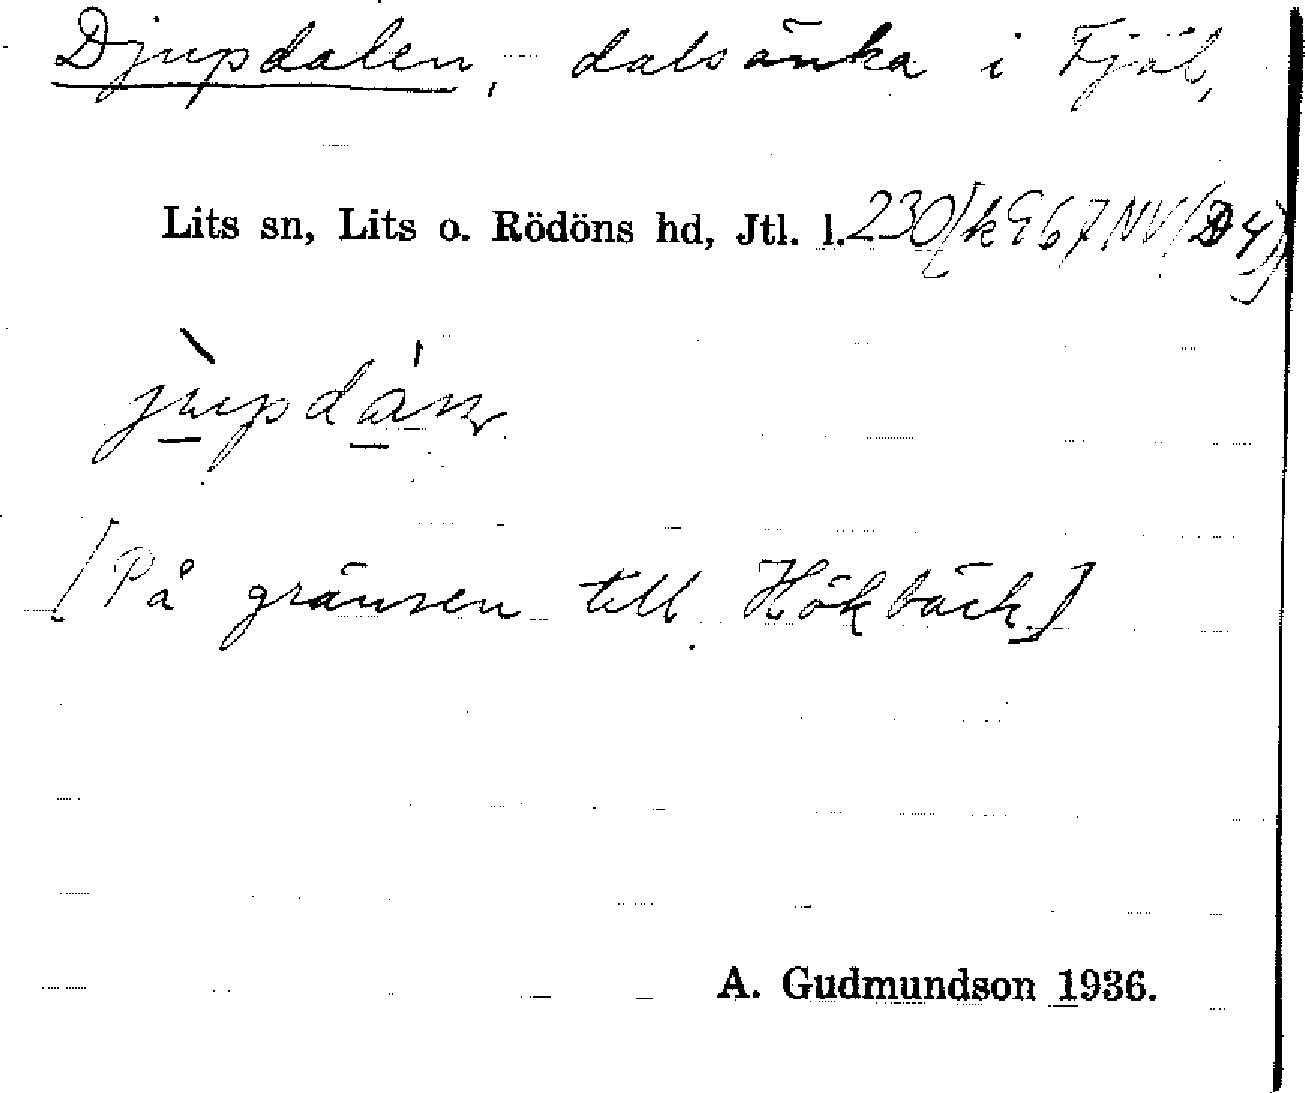 Djupdalen, dalsänka i Fjäl,
Lits sn, Lits o. Rödöns hd, Jtl. l. 230 [k967NV(D4)]
jùpdán
[På gränsen till Hökbäck]
A. Gudmundson 1936.